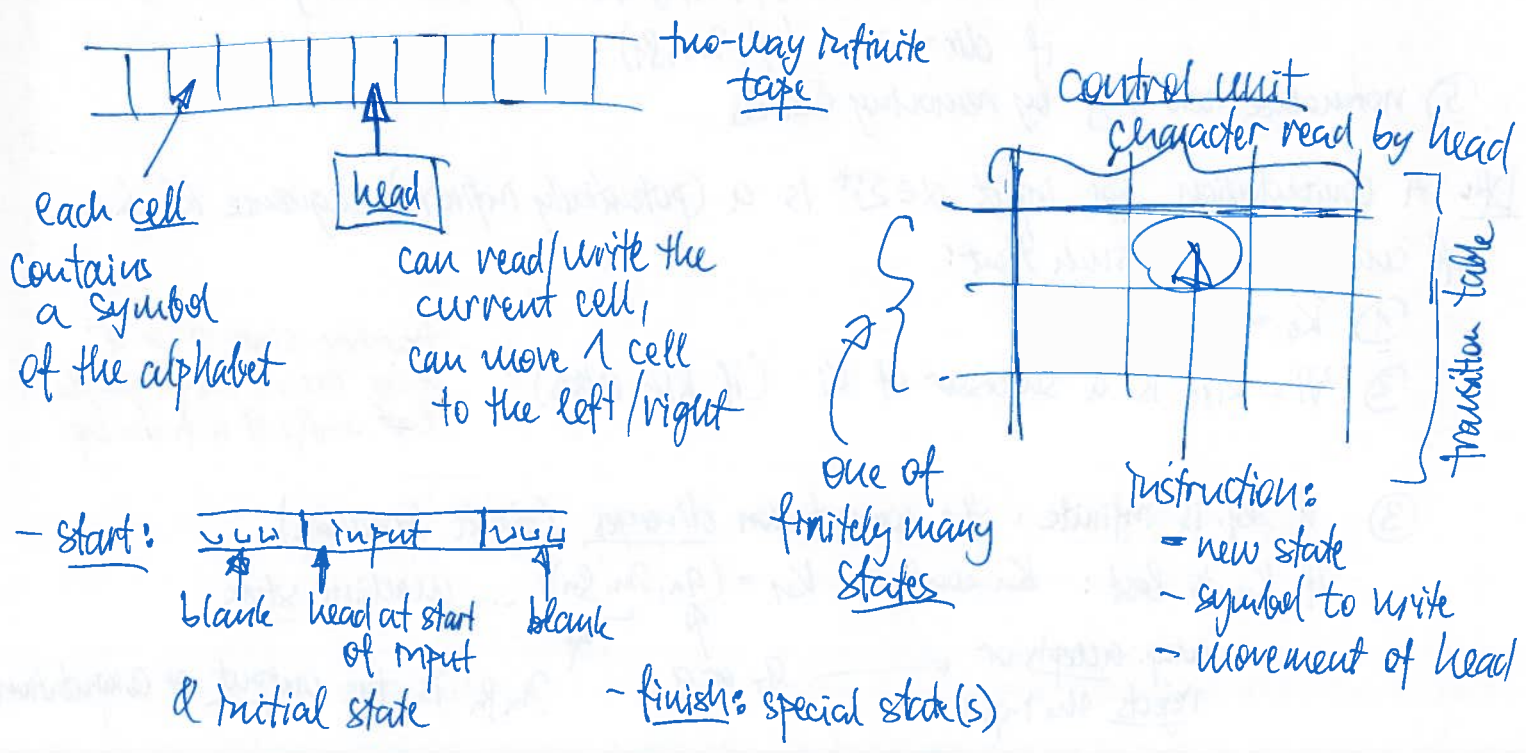 two-way infinite
tape
each cell
contains
a symbol
of the alphabet
head
can read/write the
current cell,
can move 1 cell
to the left/right
control unit
character read by head
transition table
one of
finitely many
states
instruction:
- new state
- symbol to write
- movement of head
- start:
␣␣␣ input ␣␣␣
blank head at start blank
of input
& initial state
- finish: special state(s)